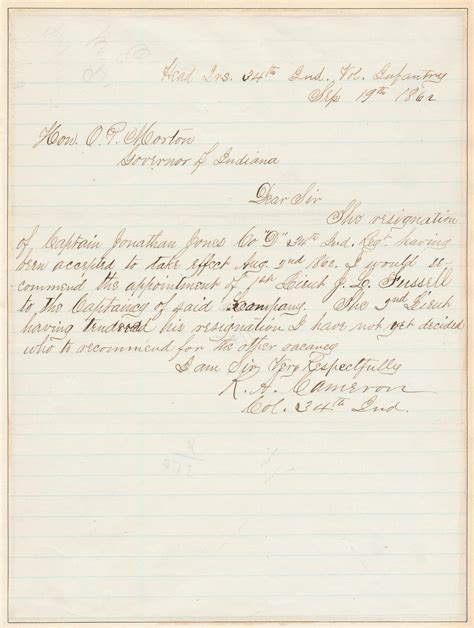 Head Qrs. 34th Ind. Vol. Infantry
Sep 19th 1862
Hon. O. P. Morton
Governor of Indiana
Dear Sir
The resignation
of Captain Jonathan Jones Co "D" 34th Ind. Regt. having
been accepted to take effect Aug. 2nd 1862. I would re-
commend the appointment of 1st Lieut J. L. Fussell
to the Captaincy of said Company. The 2nd Lieut
having tendered his resignation I have not yet decided
who to recommend for the other vacancy
I am Sir Very Respectfully
R. A. Cameron
Col. 34th Ind.